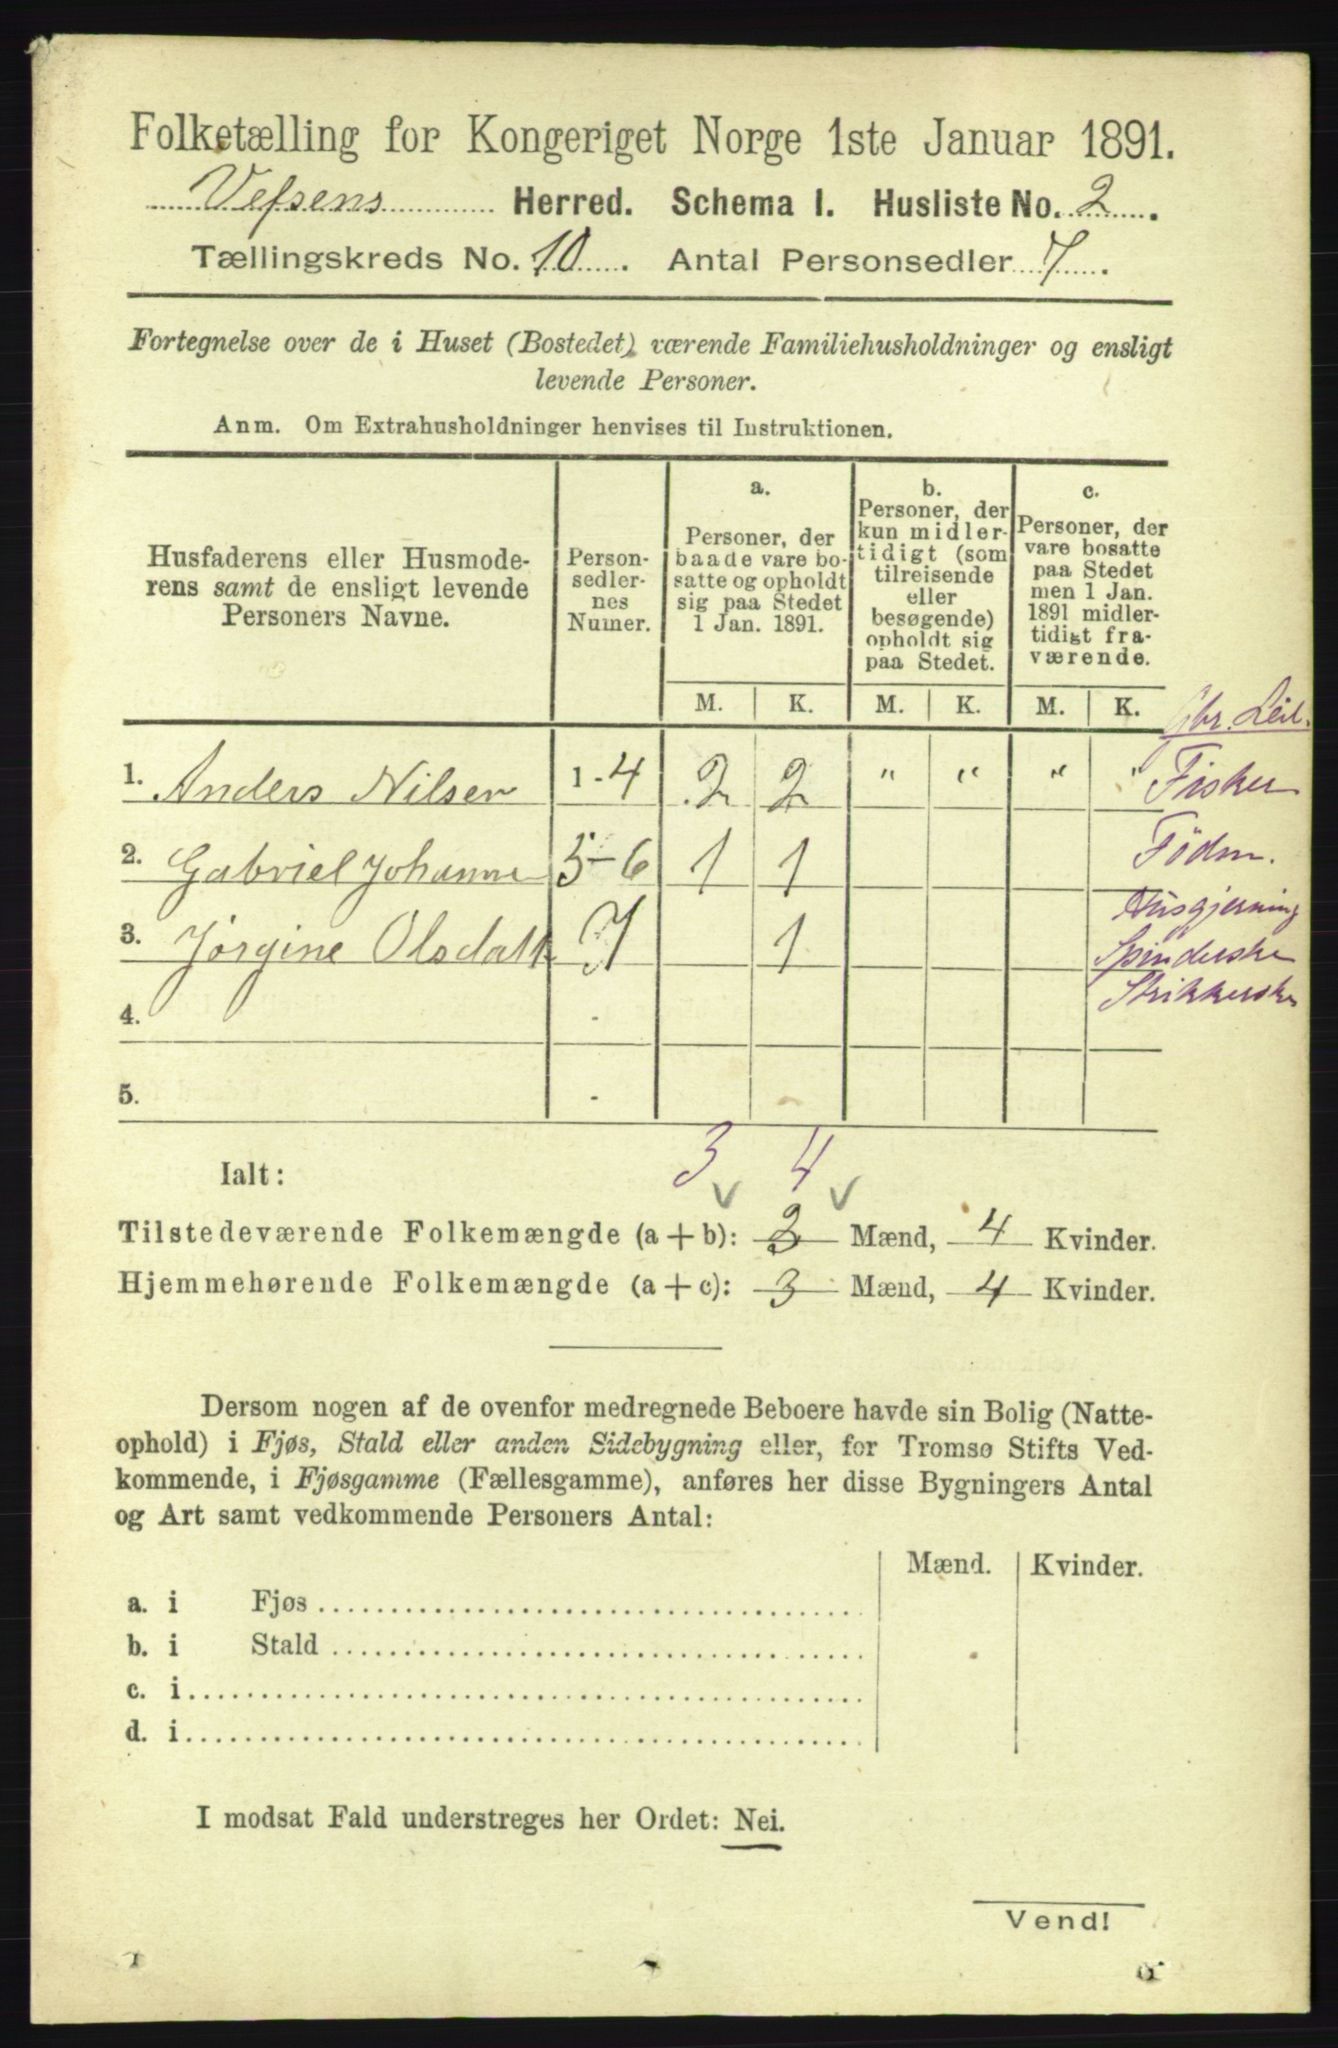 Folketælling for Kongeriget Norge 1ste Januar 1891.
Vefsens Herred. Schema I. Husliste No. 2.
Tællingskreds No. 10. Antal Personsedler 7.
Fortegnelse over de i Huset (Bostedet) værende Familiehusholdninger og ensligt
levende Personer.
Anm. Om Extrahusholdninger henvises til Instruktionen.
Husfaderens eller Husmode-
rens samt de ensligt levende
Personers Navne.
Person-
sedler-
nes
Numer.
a.
Personer, der
baade vare bo-
satte og opholdt
sig paa Stedet
1 Jan. 1891.
b.
Personer, der
kun midler-
tidigt (som
tilreisende
eller
besøgende)
opholdt sig
paa Stedet.
c.
Personer, der
vare bosatte
paa Stedet
men 1 Jan.
1891 midler-
tidigt fra-
værende.
M. K. M. K. M. K.
Gbr. Leil.
1. Anders Nilsen 1-4 2 2 " " " " Fisker
2. Gabriel Johanne 5-6 1 1 Födm.
3. Jørgine Olsdatt 7 1 Husgjerning
Spinderske
Strikkerske
4. -
5. -
3 4
Ialt:
Tilstedeværende Folkemængde (a+b): 3 Mænd, 4 Kvinder.
Hjemmehørende Folkemængde (a+c): 3 Mænd, 4 Kvinder.
Dersom nogen af de ovenfor medregnede Beboere havde sin Bolig (Natte-
ophold) i Fjøs, Stald eller anden Sidebygning eller, for Tromsø Stifts Ved-
kommende, i Fjøsgamme (Fællesgamme), anføres her disse Bygningers Antal
og Art samt vedkommende Personers Antal:
Mænd. Kvinder.
a. i Fjøs
b. i Stald
c. i
d. i
I modsat Fald understreges her Ordet: Nei.
Vend!